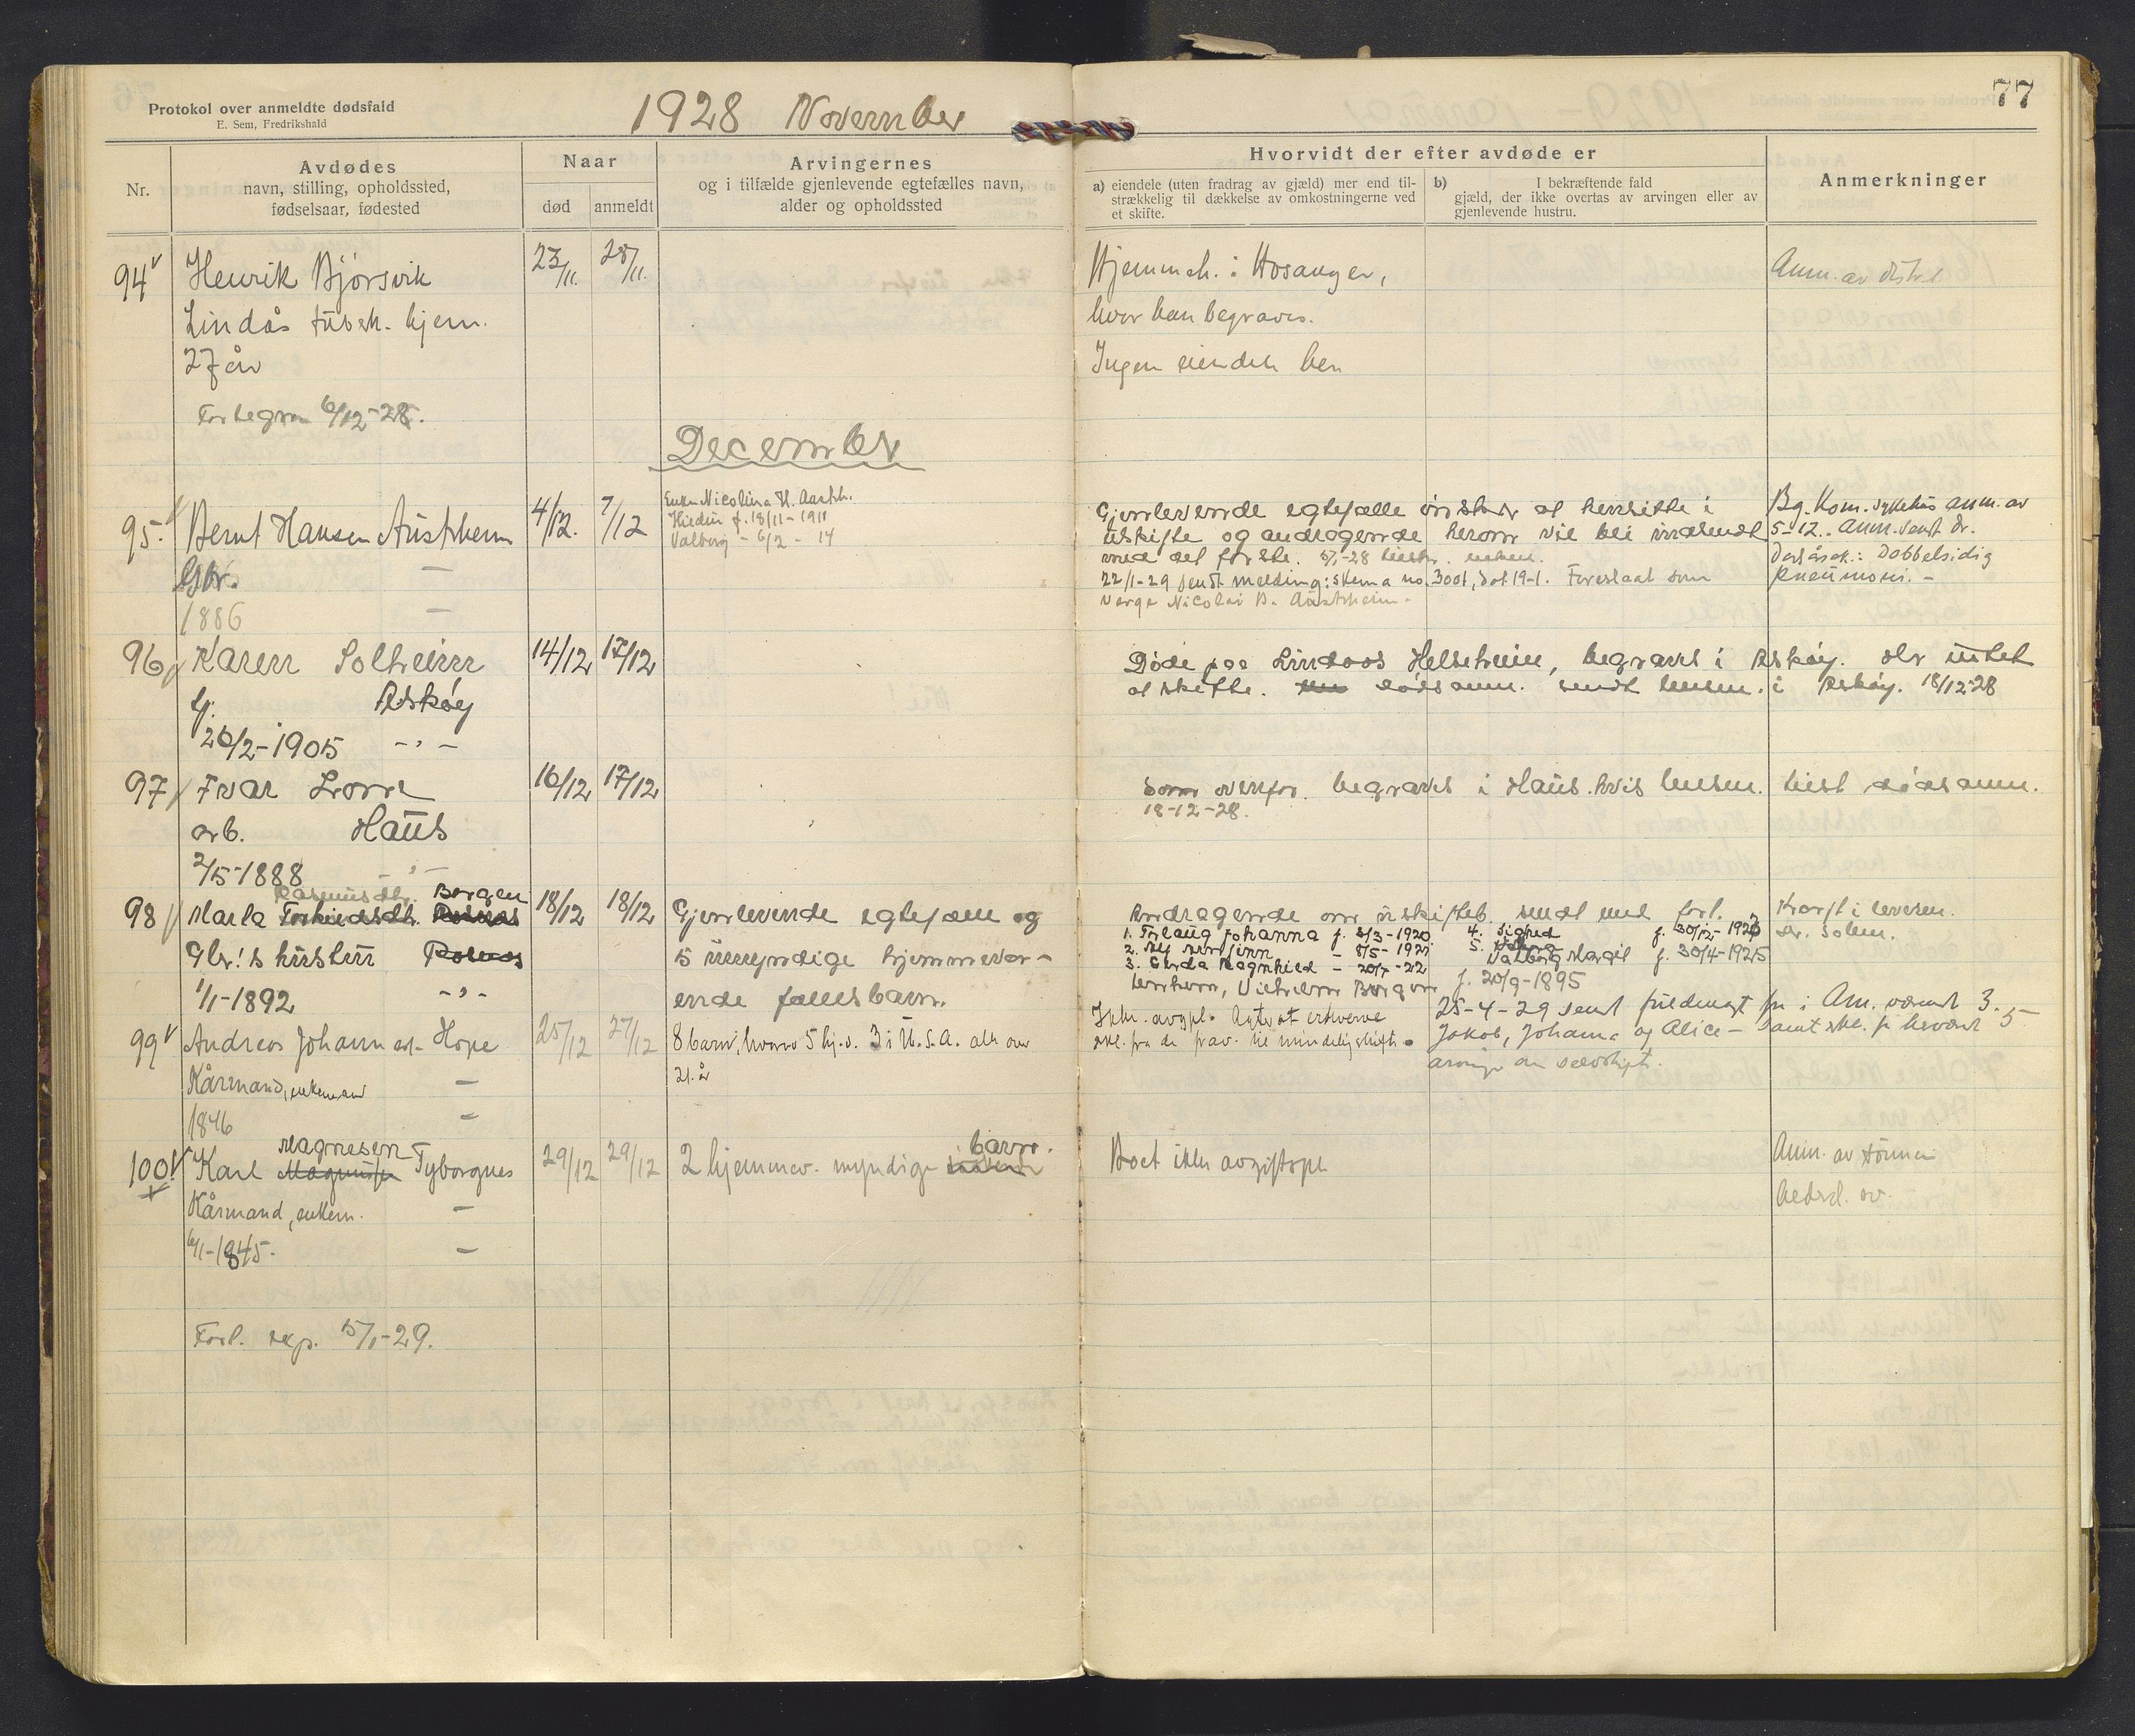 77
Protokol over anmeldte dødsfald
E. Sem, Fredrikshald
1928 November
Nr.
Avdødes
navn, stilling, opholdssted,
fødselsaar, fødested
Naar
død
anmeldt
Arvingernes
og i tilfælde gjenlevende egtefælles navn,
alder og opholdssted
Hvorvidt der efter avdøde er
a) eiendele (uten fradrag av gjæld) mer end til-
strækkelig til dækkelse av omkostningerne ved
et skifte.
b) I bekræftende fald
gjæld, der ikke overtas av arvingen eller av
gjenlevende hustru.
Anmerkninger
94 Henrik Bjørsvik 23/11. 28/11. Hjemmeh. i Hosanger, Anm. av
Lindås tuberk. hjem. hvor han begraves.
27 år Ingen eiendele her
6/12-28.
December
95. Bernt Hansen Austrheim 4/12. 7/12
Gbr. —
1886 —
Enke Nicolina H. Austrh.
f. 18/11-1911
Valborg - 6/2 - 14
Gjenlevende egtefælle ønsker at hensitte i
uskifte og andragende herom vil bli indsendt
med det første. -28
22/1-29 sendt melding: skema no. 3001, dat. 19-1. Foreslaat som
verge Nicolai B. Austrheim.
Bg. Kom. sykehus anm. av
5-12. Anm. sendt dr.
Dødsårsak: Dobbelsidig
pneumoni. -
96 Karen Solheim 14/12 17/12
Askøy
26/2-1905 -"-
Døde paa Lindaas Helseheim, begraves i Askøy. Eier intet
at skifte. Dødsanm. sendt lensm. i Askøy. 18/12-28
97 Ivar 16/12 17/12
arb. Haus
2/5-1888 -"-
Som ovenfor. begraves i Haus. hvis lensm. tilst. dødsanm.
18-12-28.
98 Marta Rasmusdtr. Borgen 18/12 18/12
Gbr.'s hustru
1/1-1892 -"-
Gjenlevende egtefælle og
5 umyndige hjemmevær-
ende fællesbarn.
Andragende om uskifteb. sendt med forl.
1. Johanna f. 8/3-1920 4. Signed f. 30/12-1923
2. - 8/5-1921 5. Valborg Margit f. 30/4-1925
3. Gerda Ragnhild - 22
Enkem., Vilhelm Borgen f. 20/9-1895
Kræft i leveren.
Dr. Solem.
99 Andreas Johannesen Hope 25/12 27/12
Kårmand, enkemand —
1846 —
8 barn, hvorav 5 hj.v. 3 i U.S.A. alle over
21 år
Ikke avgpl.
25-4-29 sendt fuldmagt fra i Am. værende 3.
Jakob, Johanna og Alice - samt
100! Karl Magnesen Fyborgnes 29/12 29/12
Kårmand, enkem. —
6/1-1845. —
2 hjemmev. myndige barn.
Boet ikke avgiftspl.
Anm. av sønnen
Forl. exp. 15/1-29.